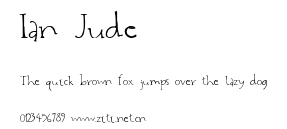 Ian Jude
The quick brown fox jumps over the lazy dog
0123456789 www.zitinet.cn